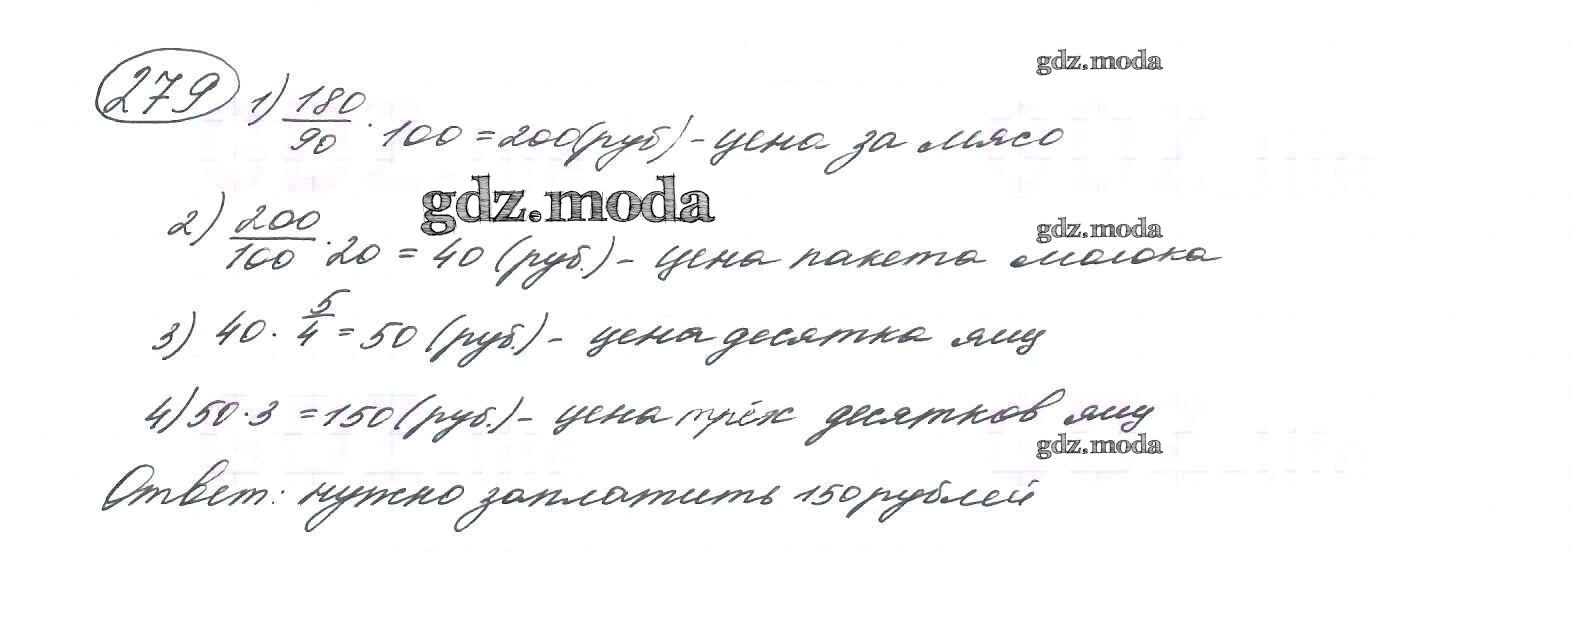 gdz.moda
279 1) 180/90 · 100 = 200 (руб) - цена за мясо
gdz.moda
gdz.moda
2) 200/100 · 20 = 40 (руб.) - цена пакета молока
3) 40 · 5/4 = 50 (руб.) - цена десятка яиц
4) 50 · 3 = 150 (руб.) - цена трёх десятков яиц
gdz.moda
Ответ: нужно заплатить 150 рублей